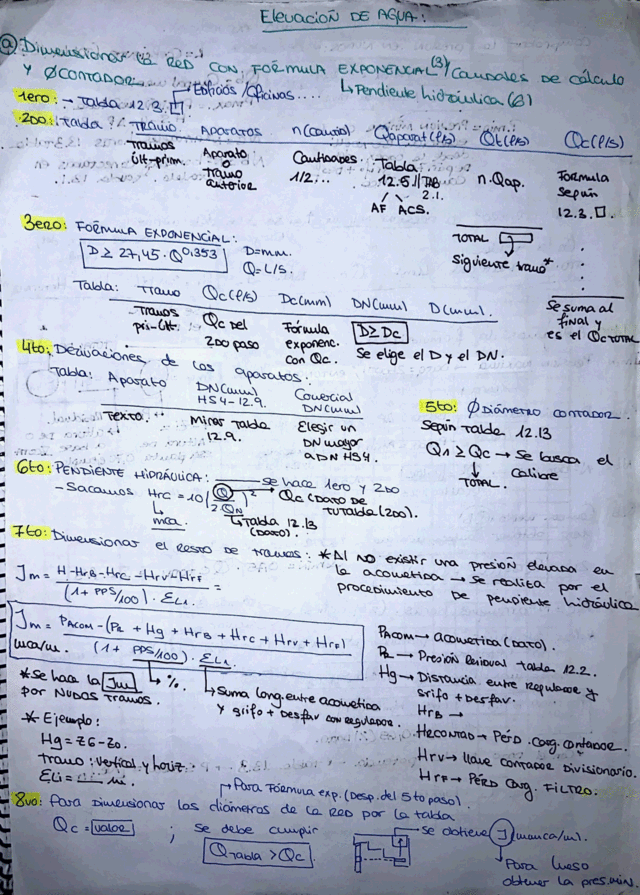 Elevación DE AGUA:
a) Dimensionar la RED CON FÓRMULA EXPONENCIAL(3)/Caudales DE cálculo
Y ØCONTADOR. ↳Pendiente hidráulica(6)
1ero: - Tabla 12.3.□ → Edificios/Oficinas....
2do: Tabla: Tramo Aparatos n(cantid) Qaparat(l/s) Qt(l/s) Qc(l/s)
Tramos últ-prim. Aparato o tramo anterior Cantidades 1/2... Tabla 12.5//TAB 2.1. n.Qap. Fórmula según 12.3.□.
AF ACS.
3ero: FÓRMULA EXPONENCIAL:
D ≥ 27,45 · Q^0,353 D=mm. Q=L/S.
TOTAL
Siguiente tramo*
Se suma al final y es el Qc TOTAL
Tabla: Tramo Qc(l/s) Dc(mm) DN(mm) D(mm).
Tramos pri-últ. Qc del 2DO paso Fórmula exponenc. con Qc. D≥Dc
Se elige el D y el DN.
4to: Derivaciones de los aparatos:
Tabla: Aparato DN(mm) HS4-12.9. Comercial DN(mm)
Texto.. Mirar tabla 12.9. Elegir un DN mayor a DN HS4.
5to: Ø Diámetro contador.
Según tabla 12.13
Q1 ≥ Qc → Se busca el calibre
↓ TOTAL.
6to: PENDIENTE HIDRÁULICA: → se hace 1ero y 2DO
- Sacamos Hrc = 10(Q/2Qn)² → Qc (DATO DE TU TABLA (2DO).
↓ mca. ↳Tabla 12.13 (DATO).
7to: Dimensionar el resto de tramos: *Al NO existir una presión elevada en
la acometida → se realiza por el
procedimiento de pendiente hidráulica
Jm = H-HrB-Hrc-HrV-HrF / (1+PPS/100) · ΣLi =
Jm = PACOM-(PR + Hg + HrB + Hrc + Hrv + HrF) / (1 + PPS/100) · ΣLi
mca/m.
PACOM → acometida (DATO).
PR → Presión Residual tabla 12.2.
Hg → Distancia entre regulador y
grifo + desfav.
HrB →
HrCONTAD → PÉRD. Carg. contador.
Hrv → llave contador divisionario.
HrF → PÉRD Carg. FILTRO.
*Se hace la Jm por NUDOS TRAMOS.
↳ %.
↳ Suma long. entre acometida
y grifo + desfav con regulador.
* Ejemplo:
Hg = Z6-Z0.
Tramo: vertical y horiz.
ΣLi = __ m.
8vo: Para Dimensionar los diámetros de la RED por la tabla
→ Para Fórmula exp. (Desp. del 5to paso).
Qc = valor ; se debe cumplir → se obtiene J (mmca/m).
Qtabla > Qc.
Para luego
obtener la pres.min.